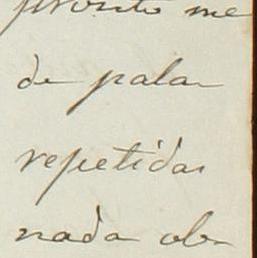 pronto me
de pala
repetidas
nada ob